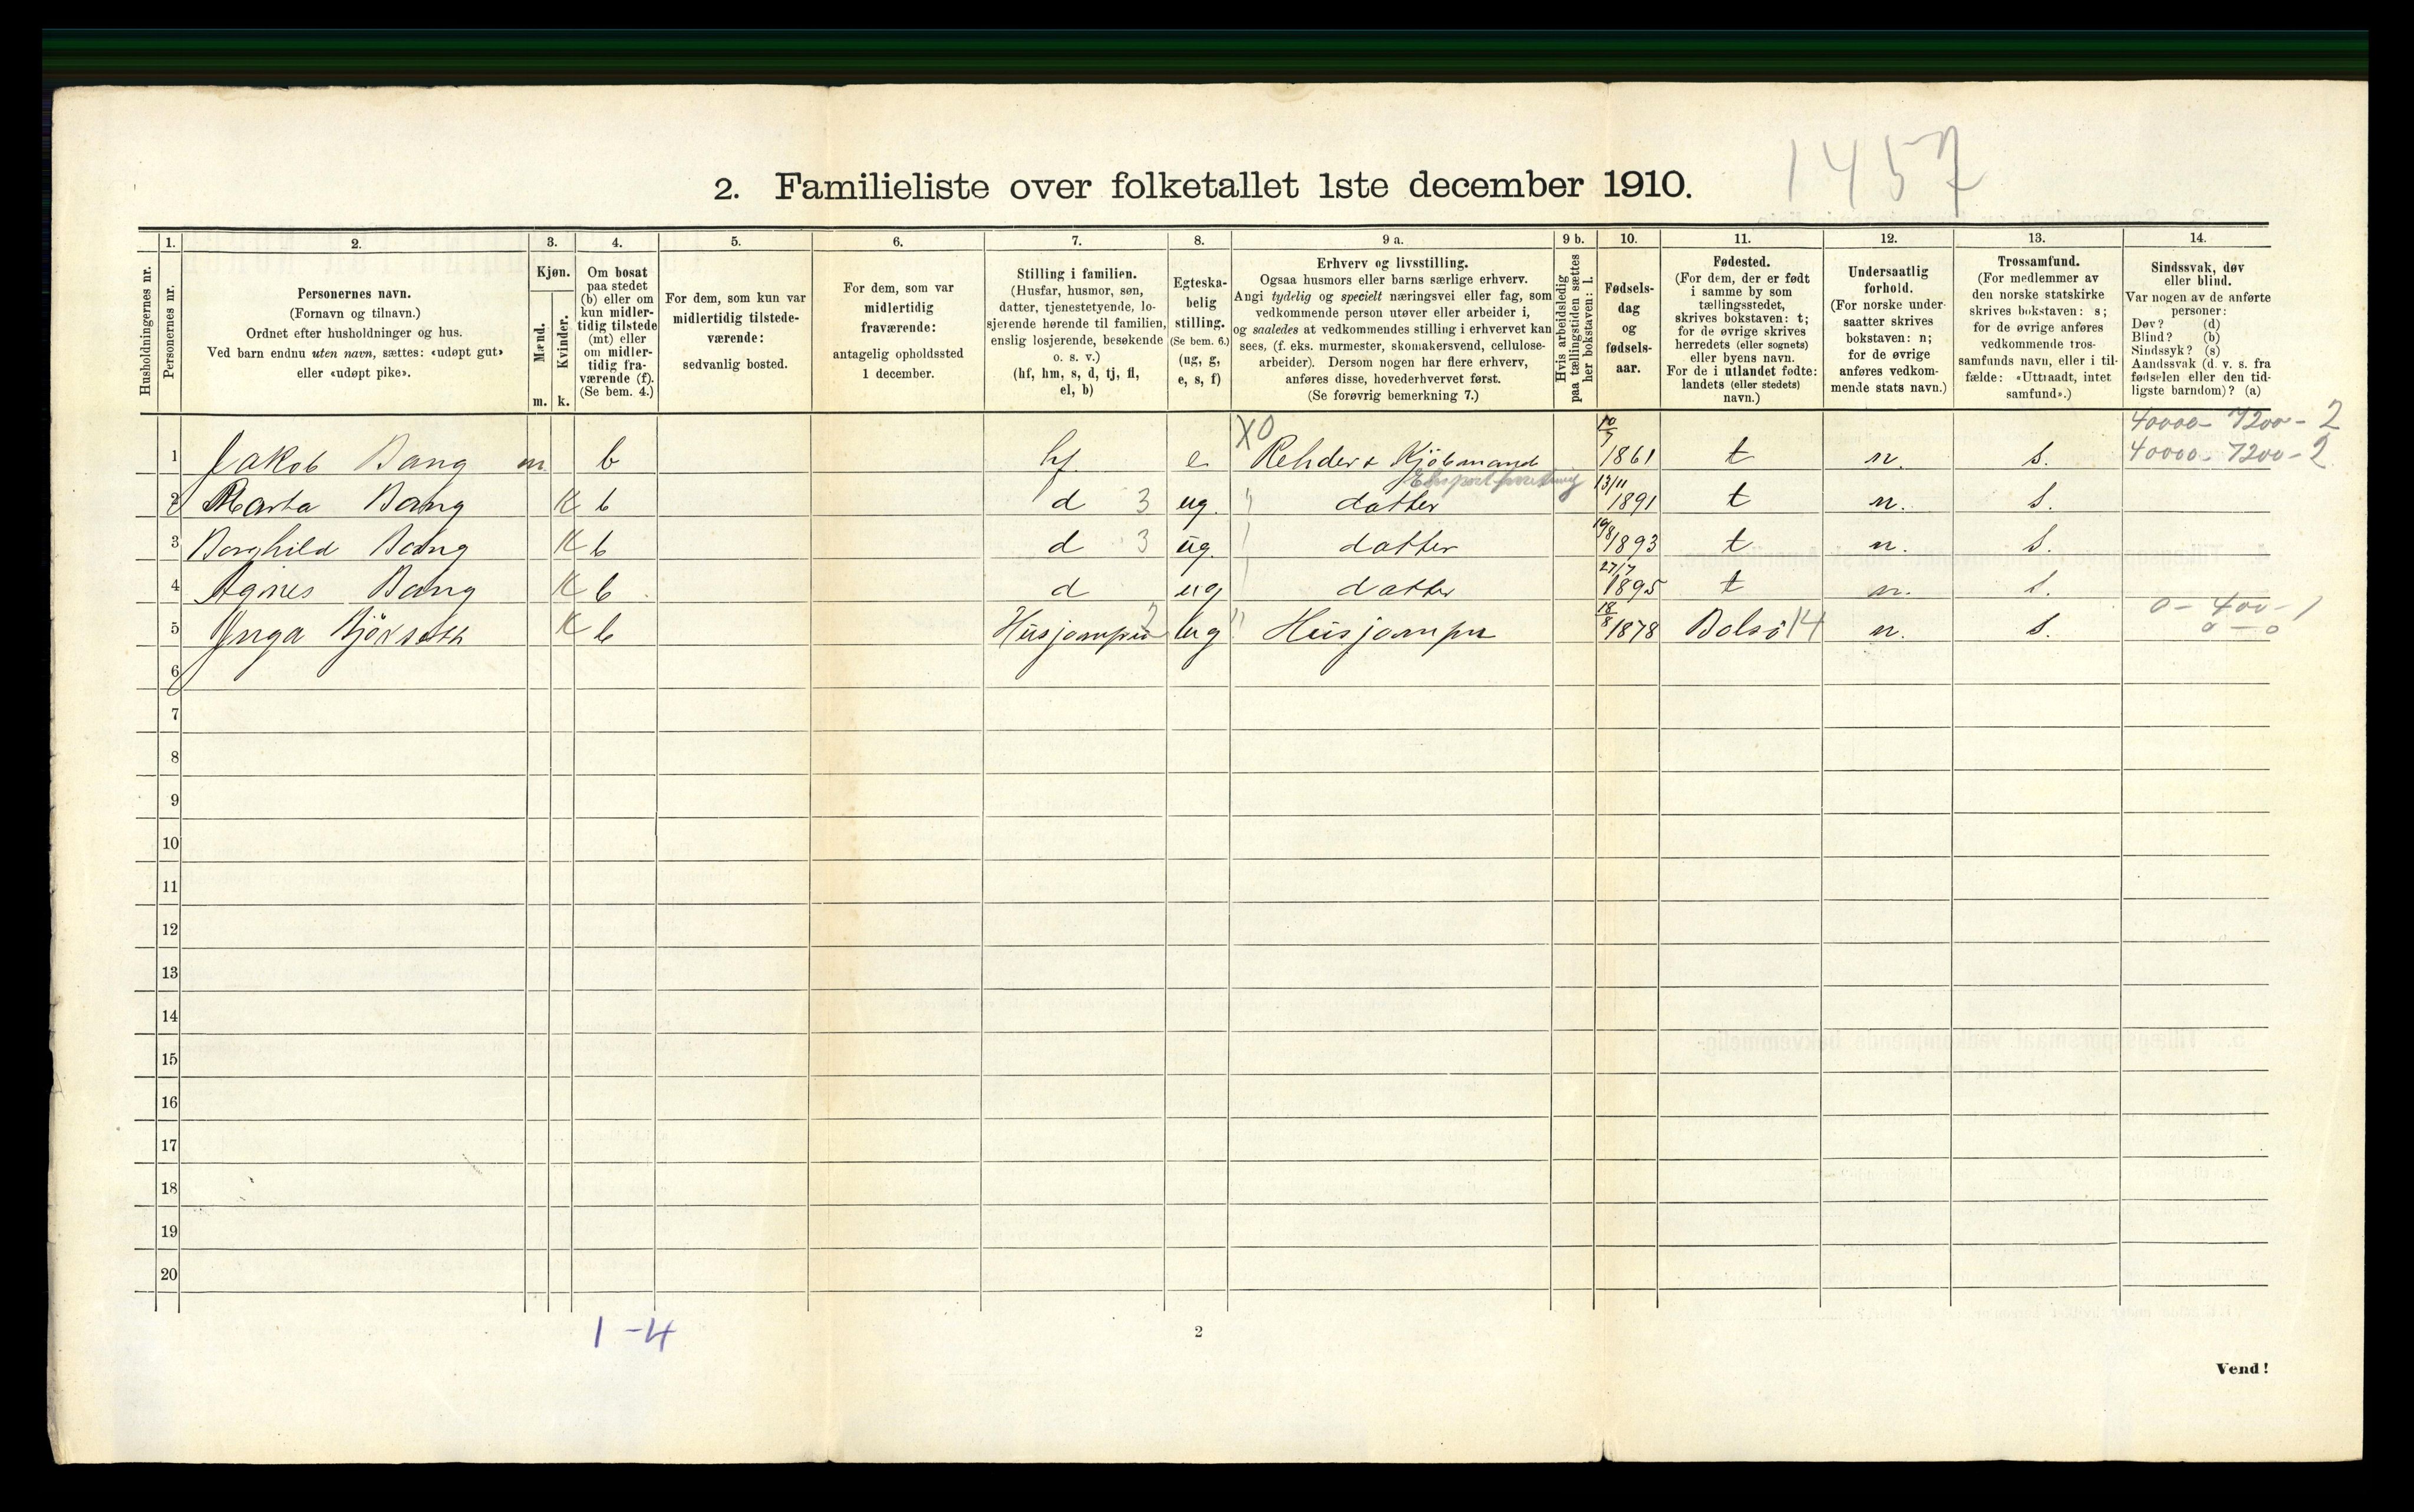 1457
2. Familieliste over folketallet 1ste december 1910.
Husholdningernes nr.
1.
Personernes nr.
2.
Personernes navn.
(Fornavn og tilnavn.)
Ordnet efter husholdninger og hus.
Ved barn endnu uten navn, sættes: «udøpt gut»
eller «udøpt pike».
3.
Kjøn.
Mænd.
Kvinder.
m. k.
4.
Om bosat
paa stedet
(b) eller om
kun midler-
tidig tilstede
(mt) eller
om midler-
tidig fra-
værende (f).
(Se bem. 4.)
5.
For dem, som kun var
midlertidig tilstede-
værende:
sedvanlig bosted.
6.
For dem, som var
midlertidig
fraværende:
antagelig opholdssted
1 december.
7.
Stilling i familien.
(Husfar, husmor, søn,
datter, tjenestetyende, lo-
sjerende hørende til familien,
enslig losjerende, besøkende
o. s. v.)
(hf, hm, s, d, tj, fl,
el, b)
8.
Egteska-
belig
stilling.
(Se bem. 6.)
(ug, g,
e, s, f)
9 a.
Erhverv og livsstilling.
Ogsaa husmors eller barns særlige erhverv.
Angi tydelig og specielt næringsvei eller fag, som
vedkommende person utøver eller arbeider i,
og saaledes at vedkommendes stilling i erhvervet kan
sees, (f. eks. murmester, skomakersvend, cellulose-
arbeider). Dersom nogen har flere erhverv,
anføres disse, hovederhvervet først.
(Se forøvrig bemerkning 7.)
9 b.
Hvis arbeidsledig
paa tællingstiden sættes
her bokstaven: l.
10.
Fødsels-
dag
og
fødsels-
aar.
11.
Fødested.
(For dem, der er født
i samme by som
tællingsstedet,
skrives bokstaven: t;
for de øvrige skrives
herredets (eller sognets)
eller byens navn.
For de i utlandet fødte:
landets (eller stedets)
navn.)
12.
Undersaatlig
forhold.
(For norske under-
saatter skrives
bokstaven: n;
for de øvrige
anføres vedkom-
mende stats navn.)
13.
Trossamfund.
(For medlemmer av
den norske statskirke
skrives bokstaven: s;
for de øvrige anføres
vedkommende tros-
samfunds navn, eller i til-
fælde: «Uttraadt, intet
samfund».)
14.
Sindssvak, døv
eller blind.
Var nogen av de anførte
personer:
Døv? (d)
Blind? (b)
Sindssyk? (s)
Aandssvak (d. v. s. fra
fødselen eller den tid-
ligste barndom)? (a)
40000 - 7200 - 2
1 Jakob Bang m b hf e XO Rehder & Kjöbmand 10/7 1861 t n. s. 40000 - 7200 - 2
2 Marta Bang K b d 3 ug. " datter 13/11 1891 t n. s.
3 Borghild Bang K b d 3 ug. datter 19/8 1893 t n. s.
4 Agnes Bang K b d ug datter 27/7 1895 t n. s.
0 - 400 - 1
5 Inga Björseth K b Husjompru 2 ug " Husjompru 18/8 1878 Bolsö 14 n. s. 0 - 0
6
7
8
9
10
11
12
13
14
15
16
17
18
19
20
1-4
2
Vend!